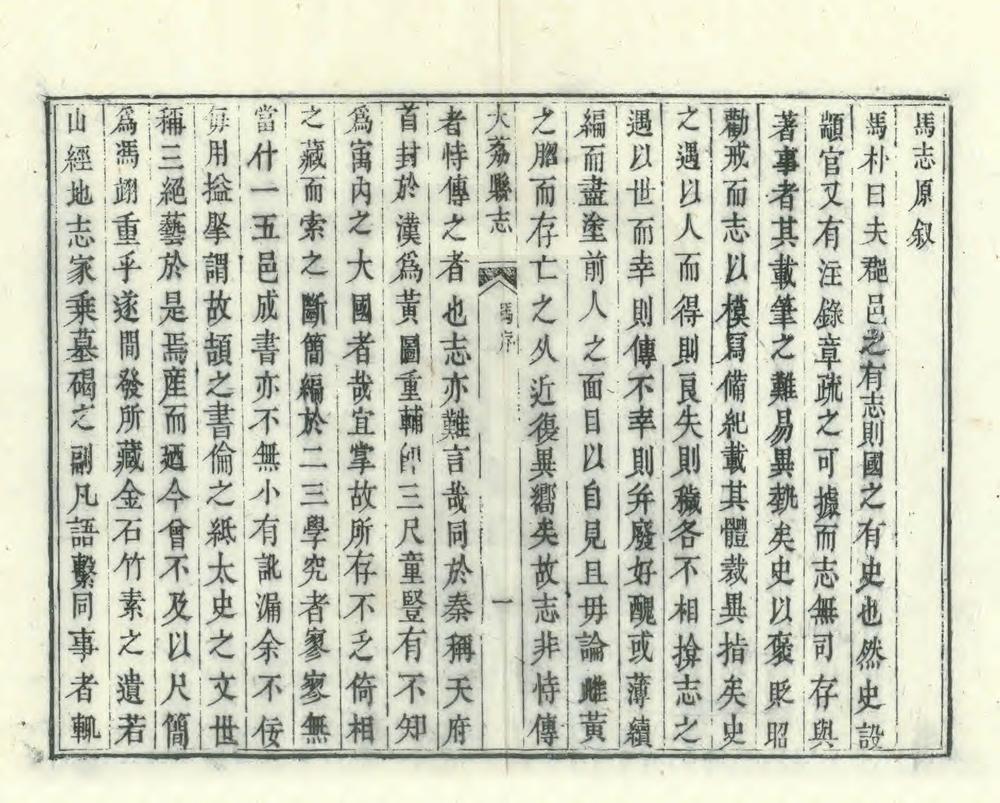 馬志原叙
馬朴曰夫郡邑之有志則國之有史也然史設
顓官又有注錄章疏之可據而志無司存與
著事者其載筆之難易異埶矣史以褒貶昭
勸戒而志以模冩備紀載其體裁異指矣史
之遇以人而得則良失則穢各不相揜志之
遇以世而幸則傳不幸則弁廢好醜或薄續
編而盡塗前人之面目以自見且毋論雌黃
之𦙍而存亡之乆近復異嚮矣故志非恃傳
大荔縣志
馬序
一
者恃傳之者也志亦難言哉同於秦稱天府
首封於漢為黃圖重輔即三尺童豎有不知
為寓內之大國者哉宜掌故所存不乏倚相
之藏而索之斷簡編於二三學究者寥寥無
當什一五邑成書亦不無小有訛漏余不佞
每用搤掔謂故頡之書倫之紙太史之文世
稱三絕藝於是焉産而廼今曾不及以尺簡
為馮翊重乎遂間發所藏金石竹素之遺若
山經地志家乘墓碣之副凡語繫同事者輒